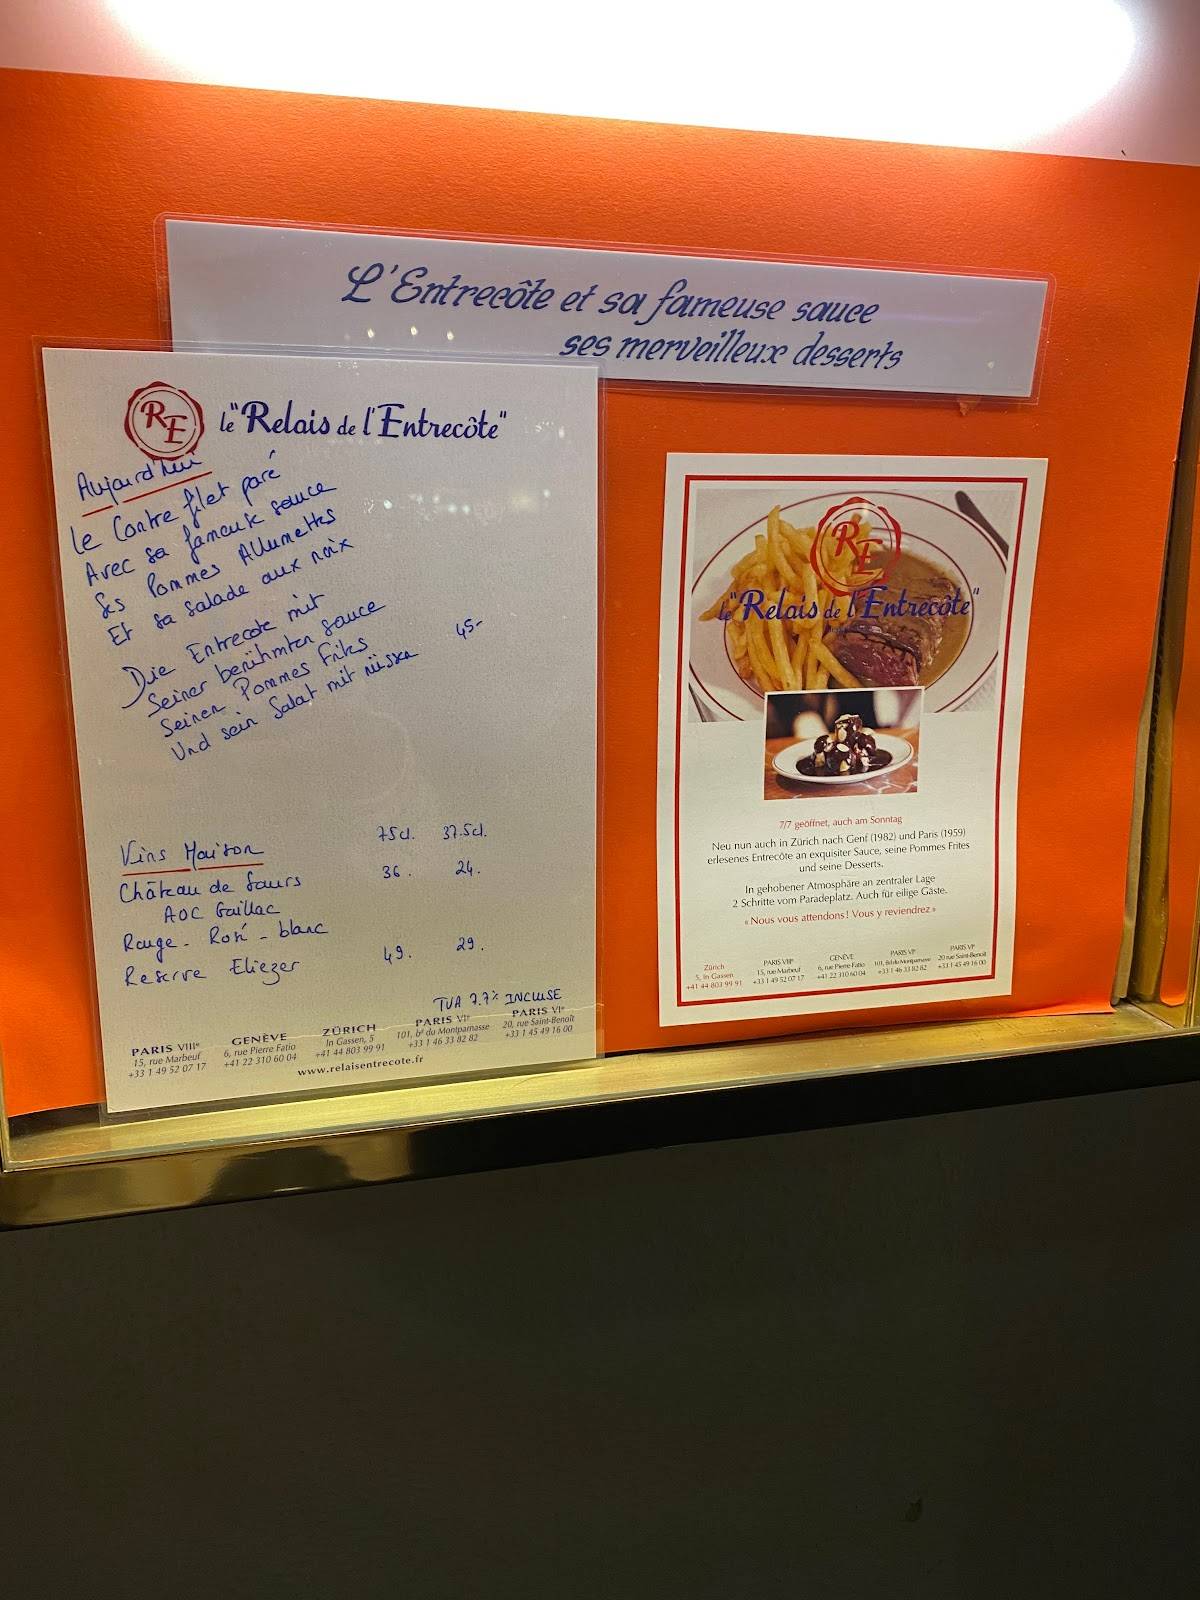 L'Entrecôte et sa fameuse sauce
ses merveilleux desserts
RE
le "Relais de l'Entrecôte"
Aujourd'hui
Le Contre filet paré
Avec sa fameuse sauce
Ses Pommes Allumettes
Et sa salade aux noix
Die Entrecote mit
Seiner berühmten sauce
Seinen Pommes Frites
Und sein Salat mit nüssen
45-
75cl. 37.5cl.
Vins Maison
Château de Saurs 36. 24.
AOC Gaillac
Rouge - Rosé - blanc
Reserve Eliezer 49. 29.
TVA 7.7% INCLUSE
PARIS VIIIe
15, rue Marbeuf
+33 1 49 52 07 17
GENÈVE
6, rue Pierre Fatio
+41 22 310 60 04
ZÜRICH
In Gassen, 5
+41 44 803 99 91
PARIS VIe
101, bd du Montparnasse
+33 1 46 33 82 82
PARIS VIe
20, rue Saint-Benoît
+33 1 45 49 16 00
www.relaisentrecote.fr
RE
le "Relais de l'Entrecôte"
7/7 geöffnet, auch am Sonntag
Neu nun auch in Zürich nach Genf (1982) und Paris (1959)
erlesenes Entrecôte an exquisiter Sauce, seine Pommes Frites
und seine Desserts.
In gehobener Atmosphäre an zentraler Lage
2 Schritte vom Paradeplatz. Auch für eilige Gäste.
« Nous vous attendons! Vous y reviendrez »
Zürich
5, In Gassen
+41 44 803 99 91
PARIS VIIIe
15, rue Marbeuf
+33 1 49 52 07 17
GENÈVE
6, rue Pierre Fatio
+41 22 310 60 04
PARIS VIe
101, Bd du Montparnasse
+33 1 46 33 82 82
PARIS VIe
20 rue Saint-Benoît
+33 1 45 49 16 00